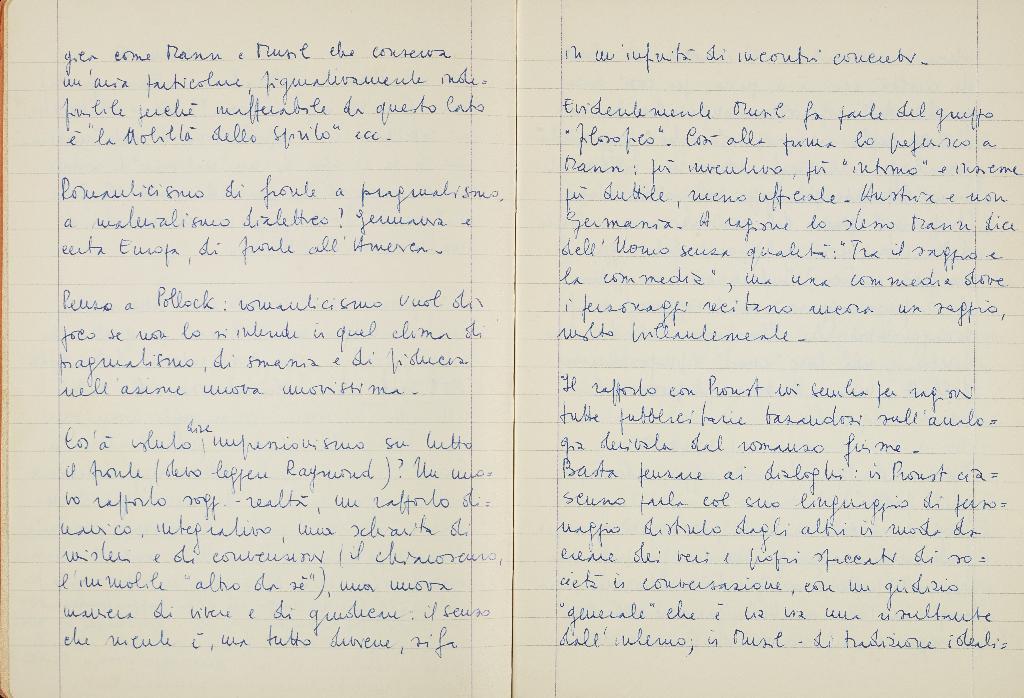 gia come Mann e Musil che conserva
un'aria particolare, figurativamente inde-
finibile perché inafferrabile da questo lato
è "la Nobiltà dello Spirito" ecc.
Romanticismo di fronte a pragmatismo,
a materialismo dialettico? Germania e
certa Europa, di fronte all'America.
Penso a Pollock: romanticismo vuol dir
poco se non lo si intende in quel clima di
pragmatismo, di smania e di fiducia
nell'azione nuova nuovissima.
Cos'à voluto dire impressionismo su tutto
il fronte (devo leggere Raymond)? Un nuo-
vo rapporto sogg.-realtà, un rapporto di-
namico, integrativo, una schiarita di
misteri e di convenzioni (il chiaroscuro,
l'immobile "altro da sé"), una nuova
maniera di vivere e di giudicare: il senso
che niente è, ma tutto diviene, si fa
in un'infinità di incontri concreti.
Evidentemente Musil fa parte del gruppo
"filosofico". Così alla prima lo preferisco a
Mann: più inventivo, più "intimo" e insieme
più duttile, meno ufficiale. Austria e non
Germania. A ragione lo stesso Mann dice
dell'Uomo senza qualità: "Tra il saggio e
la commedia", ma una commedia dove
i personaggi recitano ancora un saggio,
molto brillantemente.
Il rapporto con Proust mi sembra per ragioni
tutte pubblicitarie basandosi sull'analo-
gia derivata dal romanzo fiume.
Basta pensare ai dialoghi: in Proust cia-
scuno parla col suo linguaggio di perso-
naggio distinto dagli altri in modo da
creare dei veri e propri spaccati di so-
cietà in conversazione, con un giudizio
"generale" che è via via una risultante
dall'interno; in Musil - di tradizione ideali-